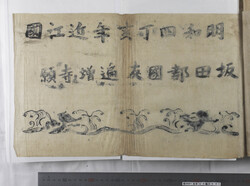 明和四丁亥年近江國
坂田郡國友遍増寺